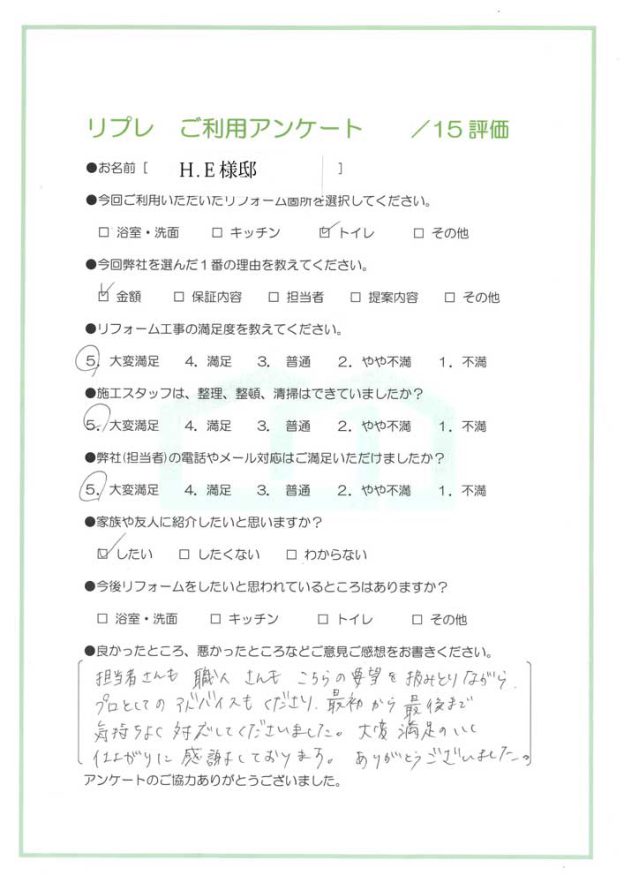 リプレ ご利用アンケート /15評価
●お名前 [ H.E様邸 ]
●今回ご利用いただいたリフォーム箇所を選択してください。
□ 浴室・洗面 □ キッチン ☑ トイレ □ その他
●今回弊社を選んだ1番の理由を教えてください。
☑ 金額 □ 保証内容 □ 担当者 □ 提案内容 □ その他
●リフォーム工事の満足度を教えてください。
5. 大変満足 4. 満足 3. 普通 2. やや不満 1. 不満
●施工スタッフは、整理、整頓、清掃はできていましたか?
5. 大変満足 4. 満足 3. 普通 2. やや不満 1. 不満
●弊社(担当者)の電話やメール対応はご満足いただけましたか?
5. 大変満足 4. 満足 3. 普通 2. やや不満 1. 不満
●家族や友人に紹介したいと思いますか?
☑ したい □ したくない □ わからない
●今後リフォームをしたいと思われているところはありますか?
□ 浴室・洗面 □ キッチン □ トイレ □ その他
●良かったところ、悪かったところなどご意見ご感想をお書きください。
担当者さんも 職人さんも こちらの要望を 汲みとりながら、
プロとしてのアドバイスもくださり、最初から最後まで
気持ちよく対応してくださいました。大変満足のいく
仕上がりに感謝しております。ありがとうございました。
アンケートのご協力ありがとうございました。